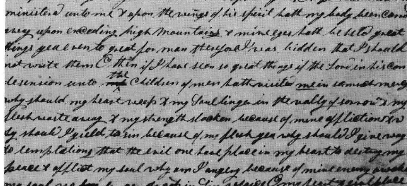 ministerd unto me & upon the wings of his spirit hath my body been carri
away upon exceeding high Mountains & mine eyes hath beheld great
things yea even to great for man therefore I was bidden that I should
not write them O then if I have seen so great things if the Lord in his con
desension unto the Children of men hath visited me in so much mercy
why should my heart weep & my Soul linger in the vally of sorrow & my
flesh waste away & my strength slacken because of mine afflictions & w
hy should I yield to sin because of my flesh yea why should I give way
to temptations that the evil one have place in my heart to destroy my
peace & afflict my soul why am I angry because of mine enemy awake
my soul